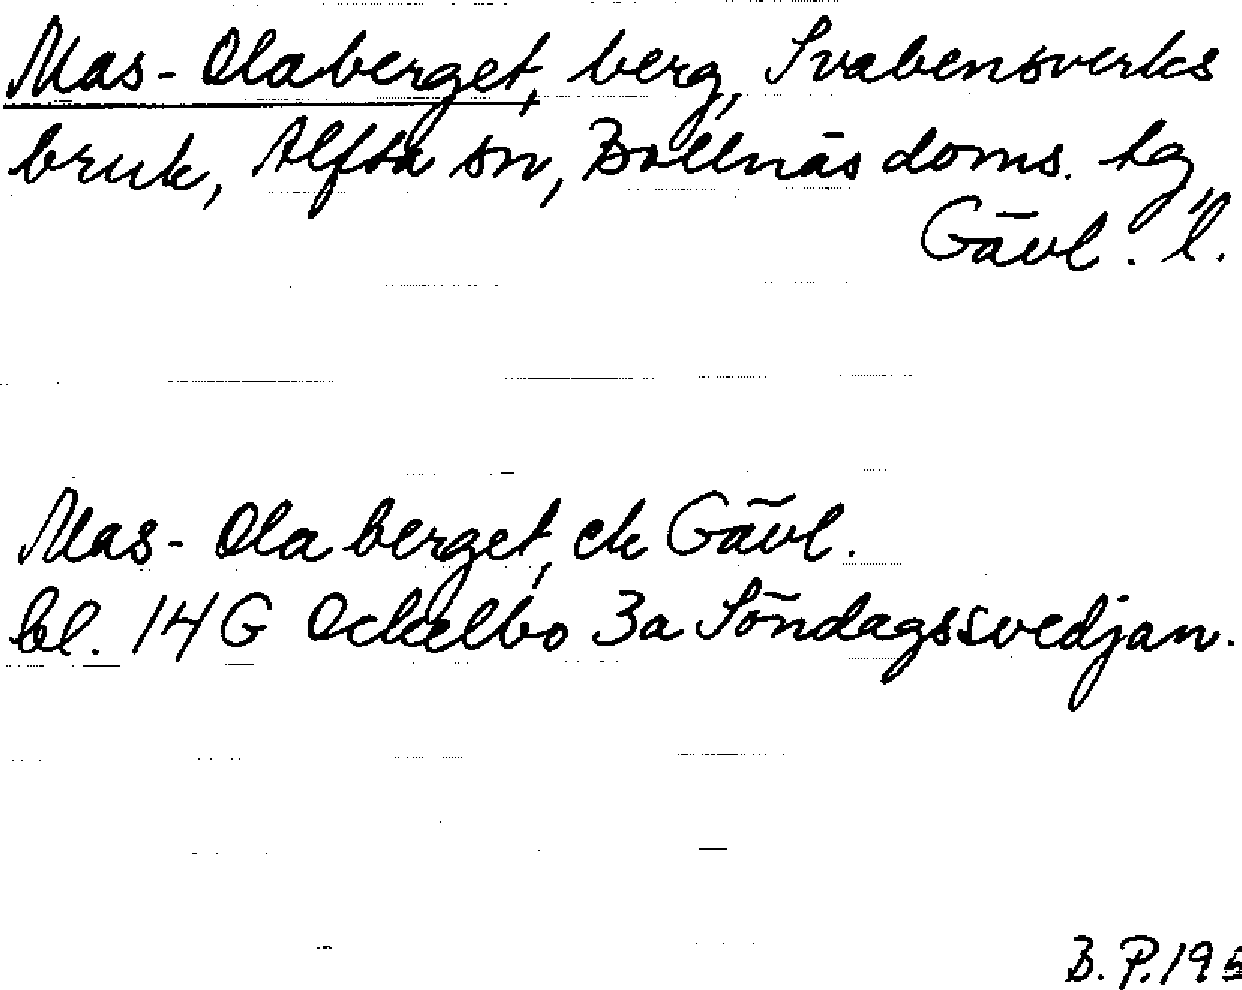 Mas-Olaberget, berg, Svabensverks
bruk, Alfta sn, Bollnäs doms. tg
Gävl. l.
Mas-Olaberget, ek Gävl.
bl. 14G Ockelbo 3a Söndagssvedjan.
B. P. 195